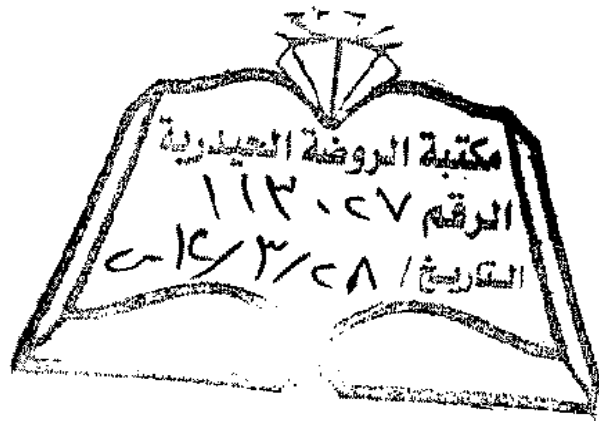 مكتبة الروضة الحيدرية
الرقم ١١٣٠٢٧
التاريخ / ٢٨/٣/